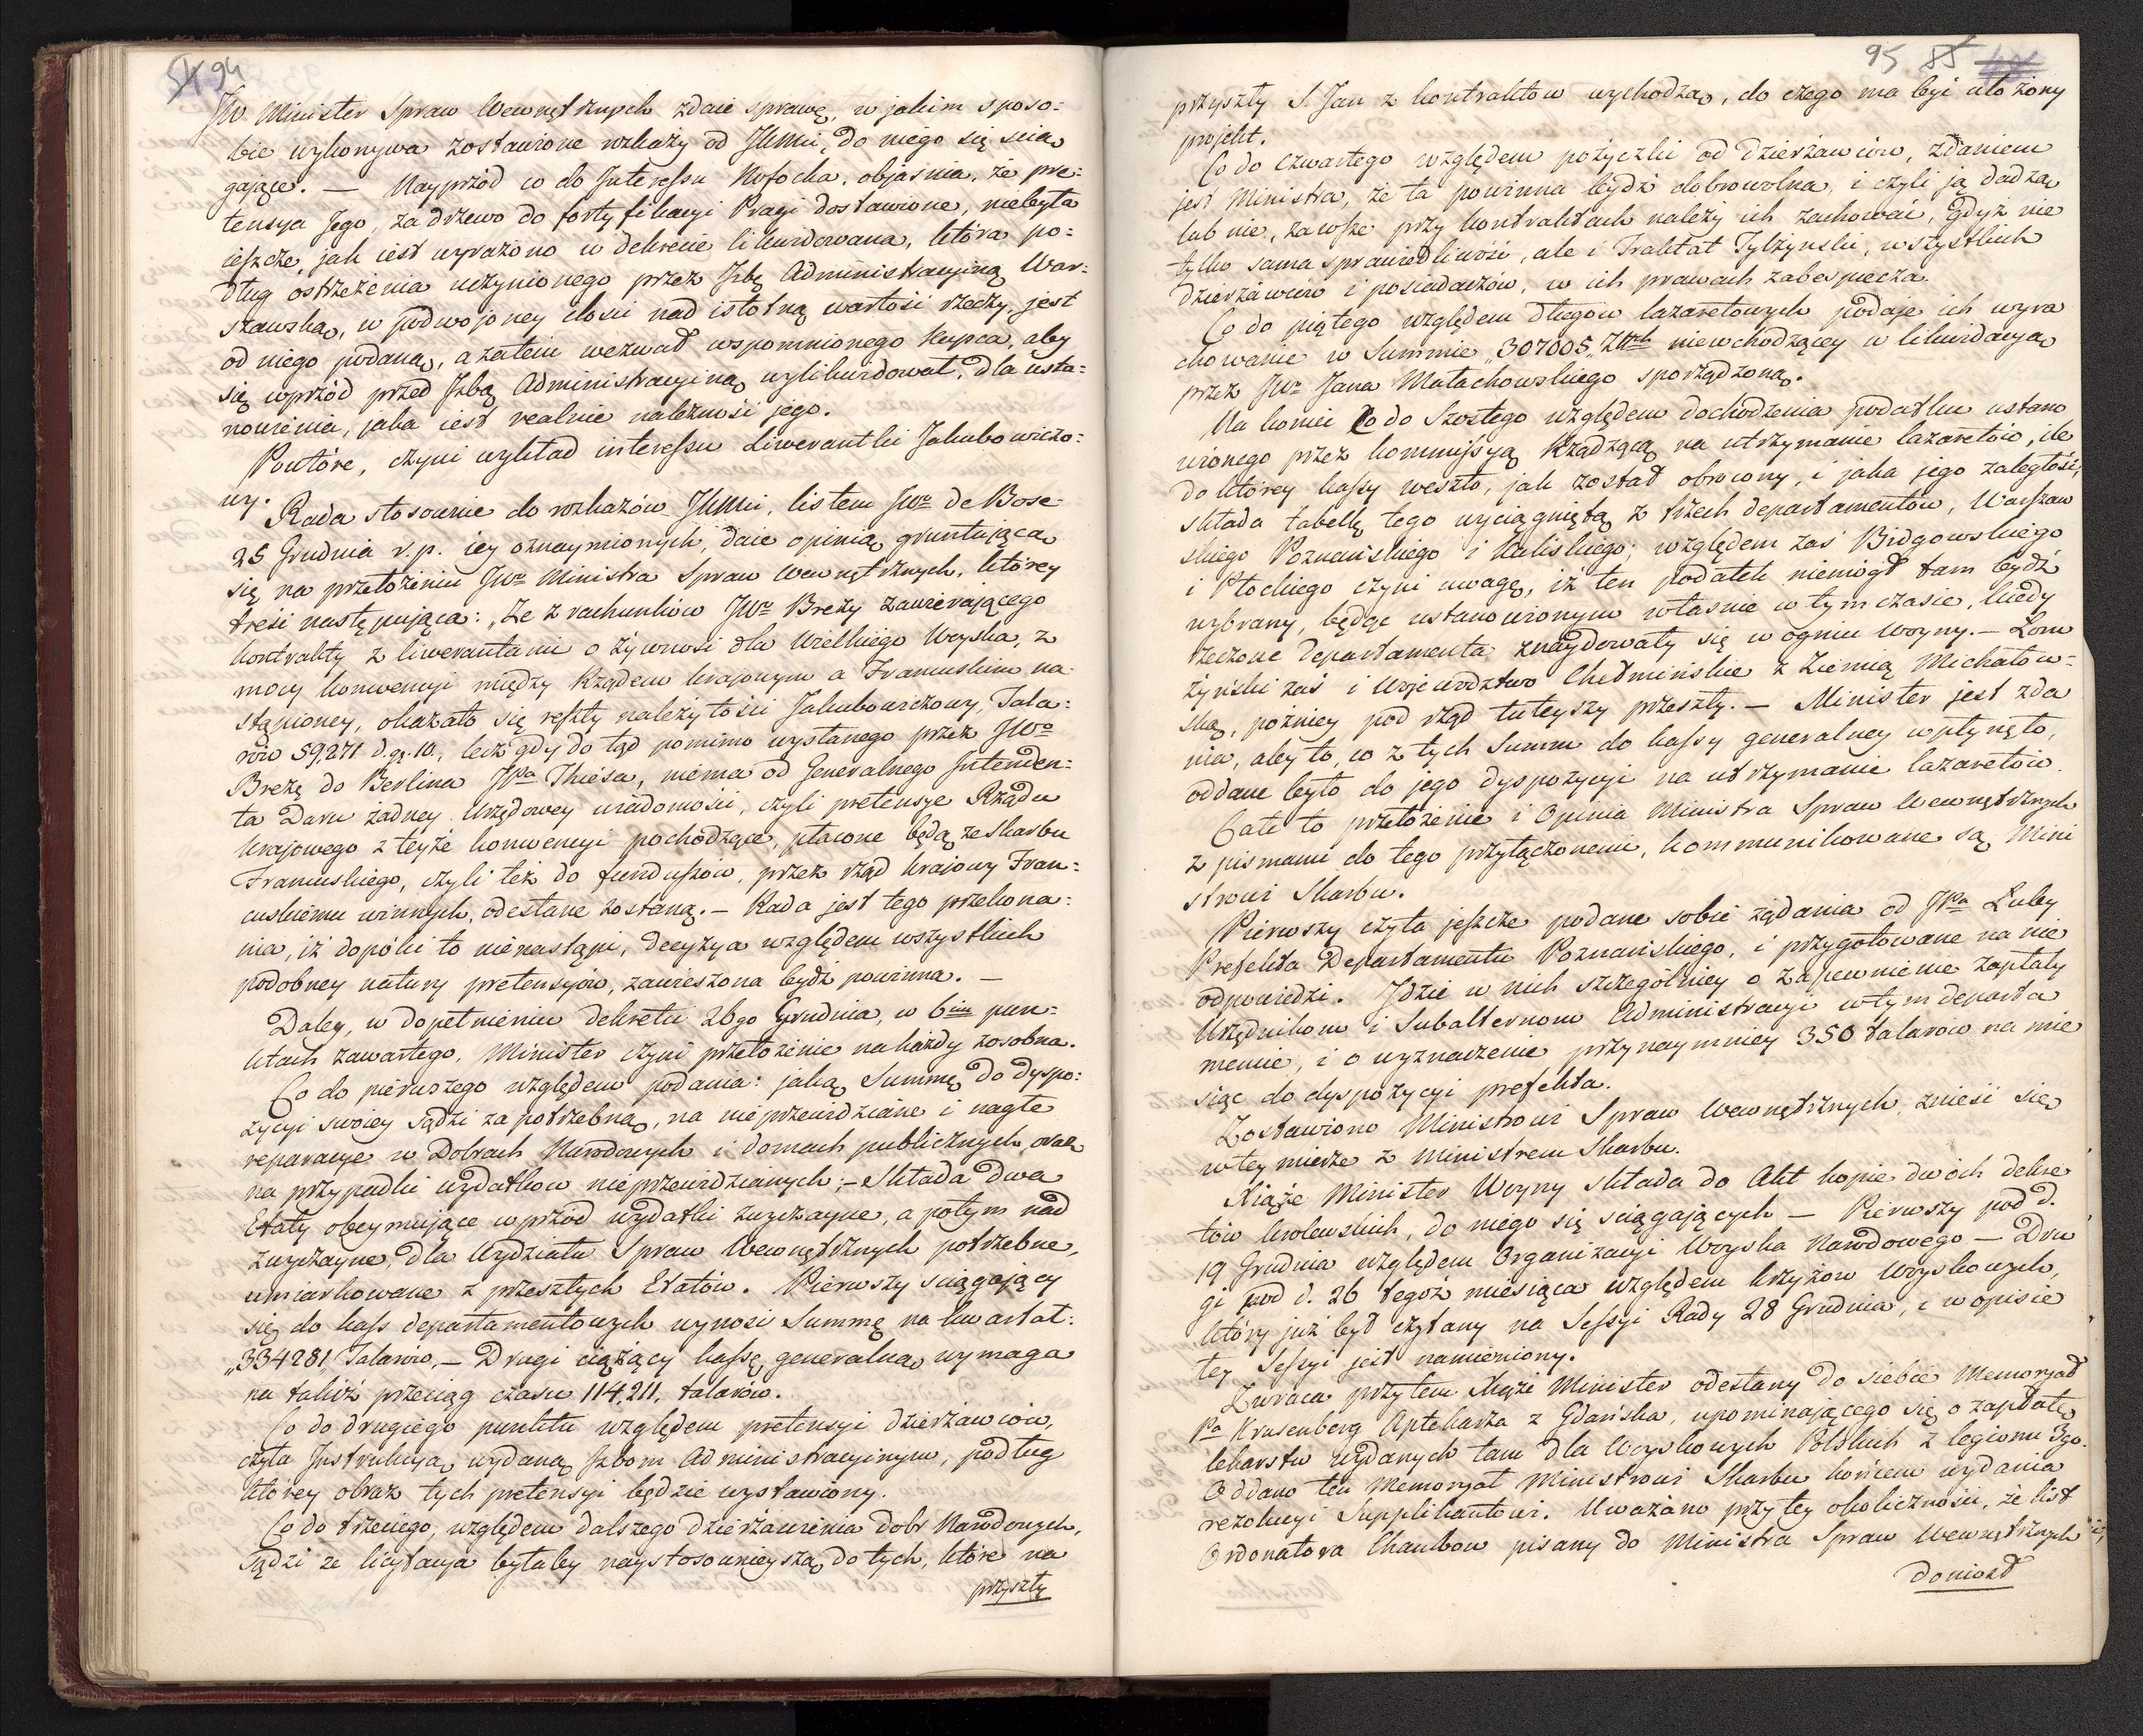 94
JW Minister Spraw Wewnętrznych zdaie sprawę, w jakim sposo:
bie wykonywa zostawione rozkazy od JKMci, do niego się ścia
gające. — Nayprzód co do Interessu Nofocha, objaśnia, że pre:
tensya Jego, za drzewo do fortyfikacyi Pragi dostawione, niebyła
ieszcze, jak iest wyrażono w dekrecie likwidowana, która po:
dług ostrzeżenia uczynionego przez Izbę Administracyiną War:
szawską, w podwojoney ilości nad istotną wartość rzeczy, jest
od niego podaną, a zatem wezwał wspomnionego Kupca, aby
się wprzód przed Izbą Administracyiną wylikwidował, dla usta:
nowienia, jaka iest realnie należność jego.
Powtóre, czyni wykład interessu Liwerantki Jakubowiczo:
wy.
Rada stosownie do rozkazów JKMci, listem JWo de Bose
25 Grudnia r. p. iey oznaymionych, daie opinią gruntuiącą
się na przełożeniu JWo Ministra Spraw Wewnętrznych, którey
treść następuiąca: "Że z rachunków JWo Brezy zawierającego
kontrakty z liwerantami o żywność dla Wielkiego Woyska, z
mocy konwencyi między Rządem krajowym a Francuskim na:
stąpioney, okazało się reszty należytości Jakubowiczowy, Tala:
rów 59,271 d.gr. 10, lecz gdy do tąd pomimo wysłanego przez JWo
Brezę do Berlina JPa Thiesa, niema od Generalnego Intenden:
ta Daru żadney Urzędowey wiadomości, czyli pretensye Rządu
krajowego z teyże konwencyi pochodzące, płacone będą ze Skarbu
Francuskiego, czyli też do funduszów, przez rząd krajowy Fran:
cuskiemu winnych, odesłane zostaną. — Rada jest tego przekona:
nia, iż dopóki to nienastąpi, decyzya względem wszystkich
podobney natury pretensyów, zawieszona bydź powinna. —
Daley, w dopełnieniu dekretu 26go Grudnia, w 6ciu pun:
ktach zawartego, Minister czyni przełożenie na każdy zosobna.
Co do pierwszego względem podania: jaką Summę do dyspo:
zycyi swoiey sądzi za potrzebną, na nieprzewidziane i nagłe
reparacye w Dobrach Narodowych i domach publicznych, oraz
na przypadki wydatków nieprzewidzianych; — Składa dwa
Etaty obeymujące wprzód wydatki zwyczayne, a potym nad
zwyczayne, dla Wydziału Spraw Wewnętrznych potrzebne,
umiarkowane z przeszłych Etatów. Pierwszy ściągający
się do kass departamentowych wynosi Summę na kwartał:
"334281 Talarów, — Drugi ciążący kassę generalną, wymaga
na takiż przeciąg czasu 114,211, talarów.
Co do drugiego punktu względem pretensyi dzierżawców,
czyta Instrukcyą wydaną Izbom Administracyinym, podług
którey obraz tych pretensyi będzie wystawiony.
Co do trzeciego, względem dalszego dzierżawienia dobr Narodowych,
sądzi ze licytacya byłaby naystosownieyszą do tych, które na
przyszły
95 85
przyszły S. Jan z kontraktów wychodzą, do czego ma być ułożony
projekt.
Co do czwartego względem pożyczki od dzierżawców, zdaniem
jest Ministra, że ta powinna bydź dobrowolna, i czyli ją dadzą
lub nie, zawsze przy kontraktach należy ich zachować, gdyż nie
tylko sama sprawiedliwość, ale i Traktat Tylżynski, wszystkich
dzierżawców i posiadaczów, w ich prawach zabespiecza.
Co do piątego względem długów lazaretowych podaje ich wyra
chowanie w Summie "307005" Złłch niewchodzącey w likwidacyą
przez JWo Jana Małachowskiego sporządzoną.
Na koniec Co do Szóstego względem dochodzenia podatku ustano
wionego przez kommissyą Rządzącą na utrzymanie lazaretów, ile
do którey kassy weszło, jak został obrócony, i jaka jego zaległość,
składa tabellę tego wyciągniętą z trzech departamentów, Warszaw
skiego Poznańskiego i Kaliskiego; względem zaś Bidgowskiego
i Płockiego czyni uwagę, iż ten podatek niemógł tam bydź
wybrany, będąc ustanowionym właśnie w tym czasie, kiedy
rzeczone Departamenta znaydowały się w ogniu woyny. — Łom
żyński zaś i Województwo Chełmińskie z Ziemią Michałow:
ską, późniey pod rząd tuteyszy przeszły. — Minister jest zda
nia, aby to, co z tych Summ do kassy generalney wpłynęło,
oddane było do jego dyspozycyi na utrzymanie lazaretów.
Całe to przełożenie i Opinia Ministra Spraw Wewnętrznych
z pismami do tego przyłączonemi, kommunikowane są Mini
strowi Skarbu.
Pierwszy czyta jeszcze podane sobie żądania od JPa Luby
Prefekta Departamentu Poznańskiego, i przygotowane na nie
odpowiedzi. Idzie w nich szczególniey o zapewnienie zapłaty
Urzędnikom i Subalternom Administracyi w tym departa
mencie, i o wyznaczenie przynaymniey 350 talarów na mie
siąc do dyspozycyi prefekta.
Zostawiono Ministrowi Spraw Wewnętrznych, znieść się
w tey mierze z Ministrem Skarbu.
Xiąże Minister Woyny składa do Akt kopie dwóch dekre
tów królewskich, do niego się ściągających — Pierwszy pod d.
19 Grudnia względem Organizacyi Woyska Narodowego — Dru
gi pod d. 26 tegoż miesiąca względem krzyżów Woyskowych,
który już był czytany na Sessyi Rady 28 Grudnia, i w opisie
tey Sessyi jest namieniony.
Zwraca przytem Xiąże Minister odesłany do siebie Memoryał
Pa Krusenberg Aptekarza z Gdańska, upominającego się o zapłatę
lekarstw wydanych tam dla Woyskowych Polskich z legionu 3go.
Oddano ten Memoryał Ministrowi Skarbu końcem wydania
rezolucyi Supplikantowi. Uważano przy tey okoliczności, że list
Ordonatora Chambon pisany do Ministra Spraw Wewnętrznych
doniósł